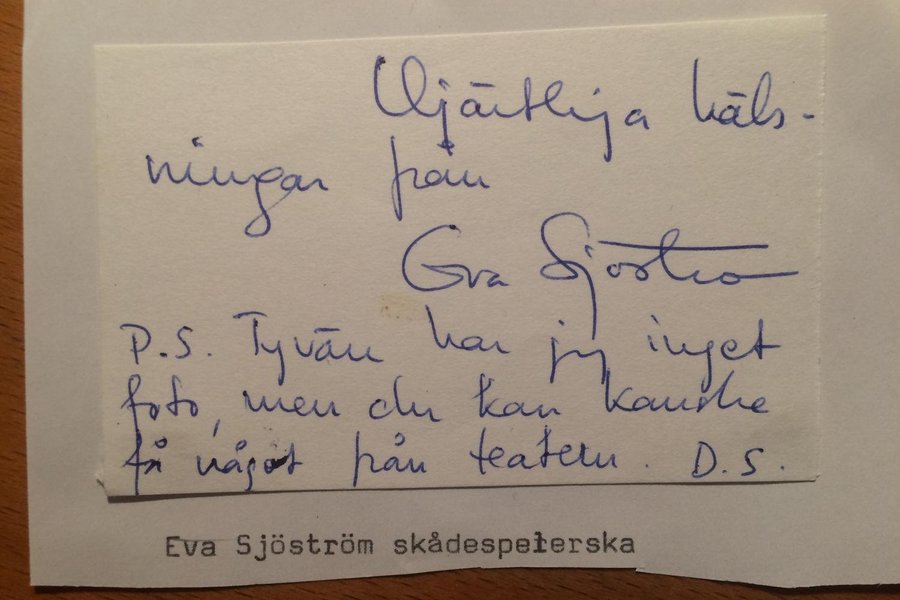 Hjärtliga häls-
ningar från
Eva Sjöström
P.S. Tyvärr har jag inget
foto, men du kan kanske
få något från teatern. D.S.
Eva Sjöström skådespelerska